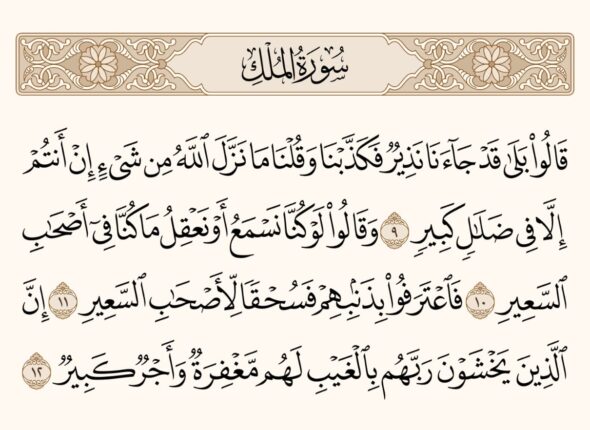 سُورَةُ المُلْكِ
قَالُوا۟ بَلَىٰ قَدْ جَآءَنَا نَذِيرٌ فَكَذَّبْنَا وَقُلْنَا مَا نَزَّلَ ٱللَّهُ مِن شَىْءٍ إِنْ أَنتُمْ
إِلَّا فِى ضَلَـٰلٍ كَبِيرٍ ٩ وَقَالُوا۟ لَوْ كُنَّا نَسْمَعُ أَوْ نَعْقِلُ مَا كُنَّا فِىٓ أَصْحَـٰبِ
ٱلسَّعِيرِ ١٠ فَٱعْتَرَفُوا۟ بِذَنۢبِهِمْ فَسُحْقًا لِّأَصْحَـٰبِ ٱلسَّعِيرِ ١١ إِنَّ
ٱلَّذِينَ يَخْشَوْنَ رَبَّهُم بِٱلْغَيْبِ لَهُم مَّغْفِرَةٌ وَأَجْرٌ كَبِيرٌ ١٢